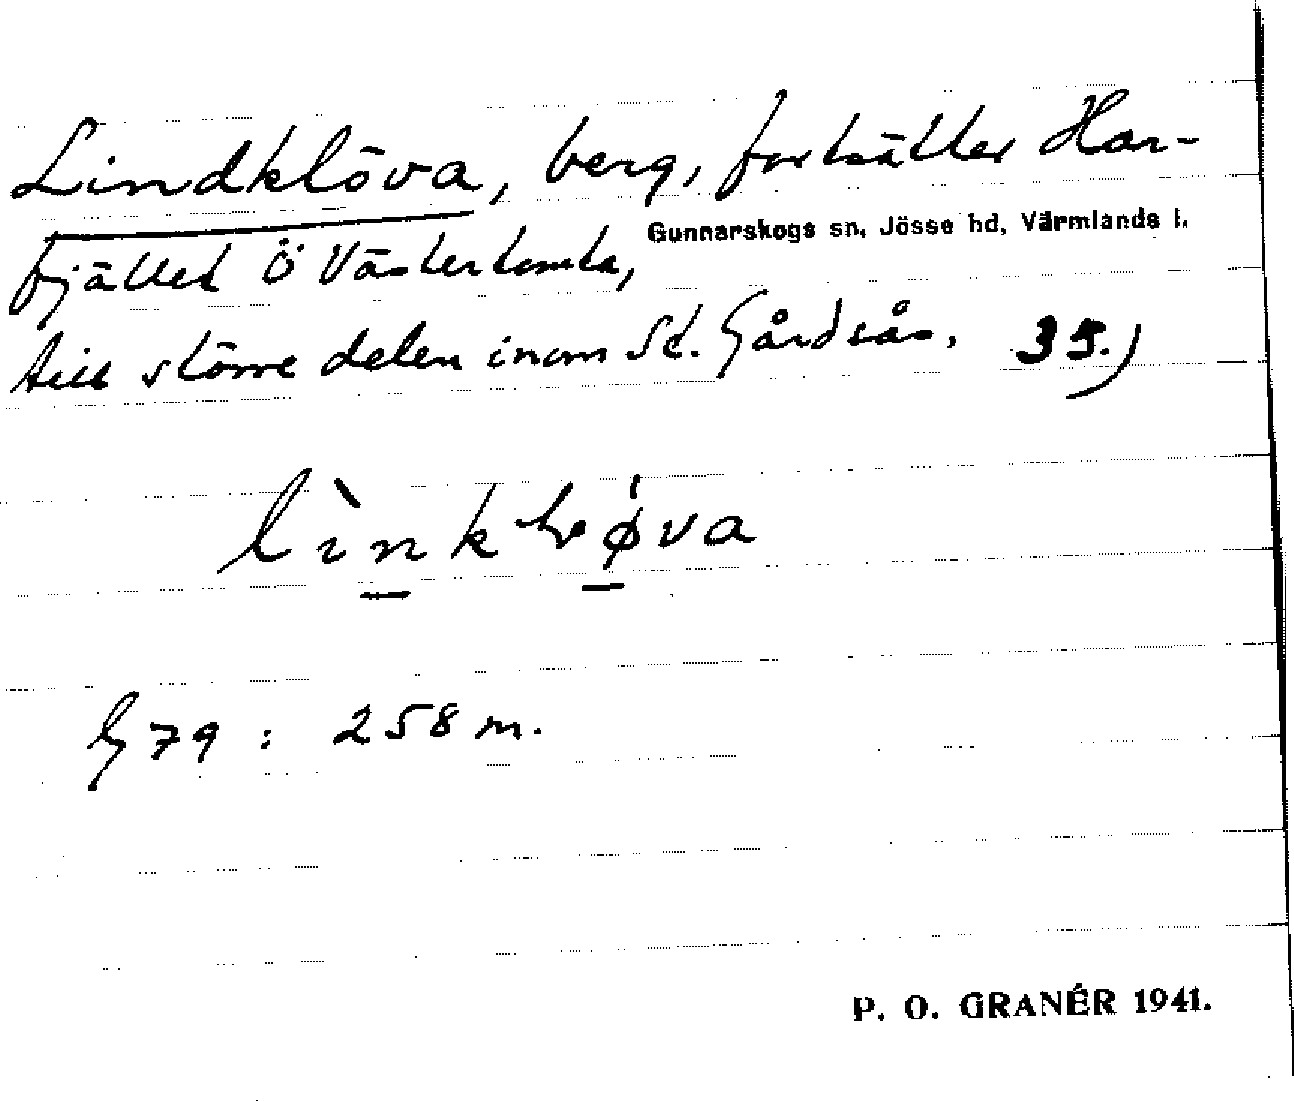 Lindklöva, berg, fortsätter Har-
fjället Ö Västertomta,
Gunnarskogs sn, Jösse hd, Värmlands l.
till större delen inom St. Gårdsås. 35.)
G 79 : 258 m.
P. O. GRANÉR 1941.